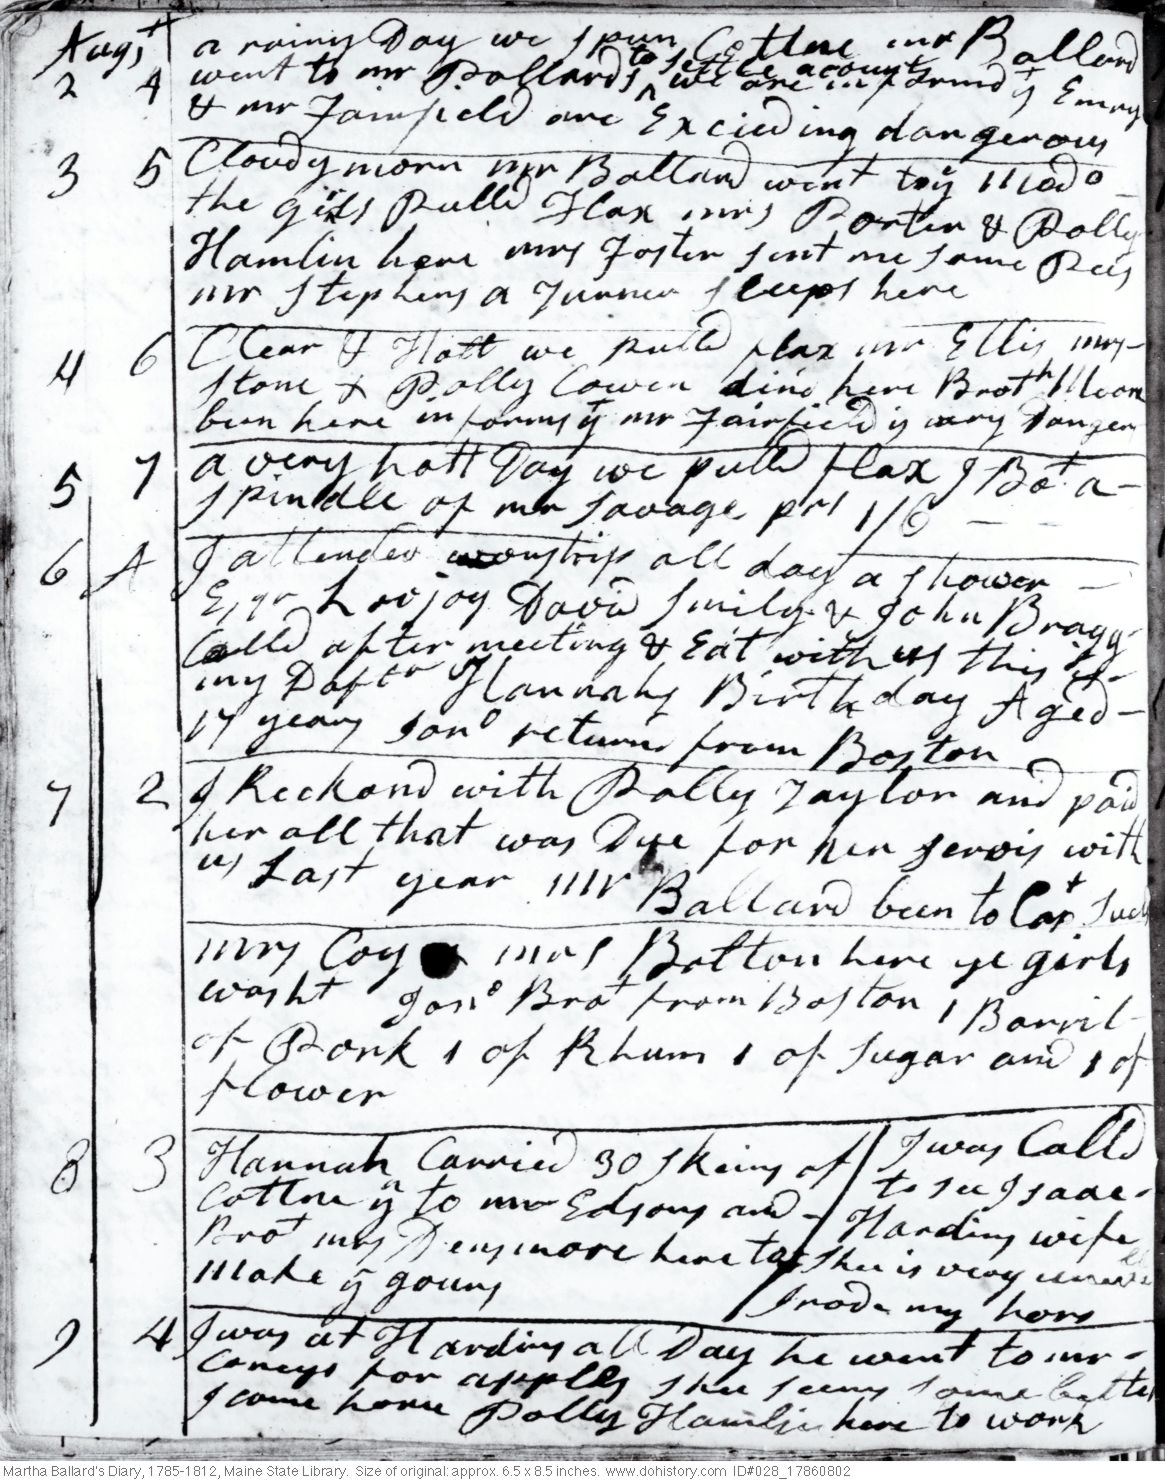 Augst
2 4 a rainy Day we spun Cottne mr Ballard
went to mr Pollards to settle acount we are informd yt Emry
& mr Fairfield are Excieeding dangerous
3 5 Cloudy morn mr Ballard went to ye Medo
the girls Pulld Flax mrs Porter & Polly
Hamlin here mrs Foster sent me some Pees
mr Stephens a Turner sleeps here
4 6 Clear & Hott we pulld flax mr Ellis mrs
Stone & Polly Cowen dind here Broth Moore
been here informs yt mr Fairfield is very Danger
5 7 a very hott Day we pulld flax I Bot a
spindle of mr Savage pr 1/6
6 A I attended worship all day a shower
Esqr Lovjoy David Smily & John Bragg
Calld after meeting & Eat with us this is
my Daftr Hannahs Birth day Aged
17 years Jono returnd from Boston
7 2 I Reckond with Polly Taylor and paid
her all that was Due for her servis with
us Last year mr Ballard been to Capt
mrs Coy & mrs Bolton here ye girls
washt Jono Brot from Boston 1 Barril
of Pork 1 of Rhum 1 of sugar and 1 of
flower
8 3 Hannah Carried 30 skeins of
Cottne yn to mr Edsons and
Brot mrs Densmore here to
make ye gouns
I was Calld
to see Isaac
Hardins wife
shee is very unwell
I rode my hors
9 4 I was at Hardins all Day he went to mr
Coneys for applls shee seems some better
I come home Polly Hamlin here to work
Martha Ballard's Diary, 1785-1812, Maine State Library. Size of original: approx. 6.5 x 8.5 inches. www.dohistory.com ID#028_17860802